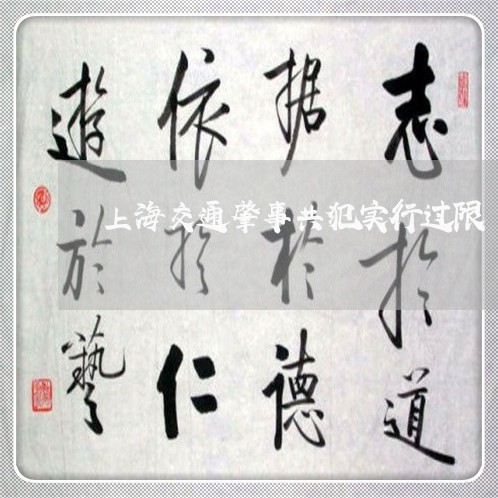 志於道
据於德
依於仁
遊於藝
上海交通肇事共犯实行过限